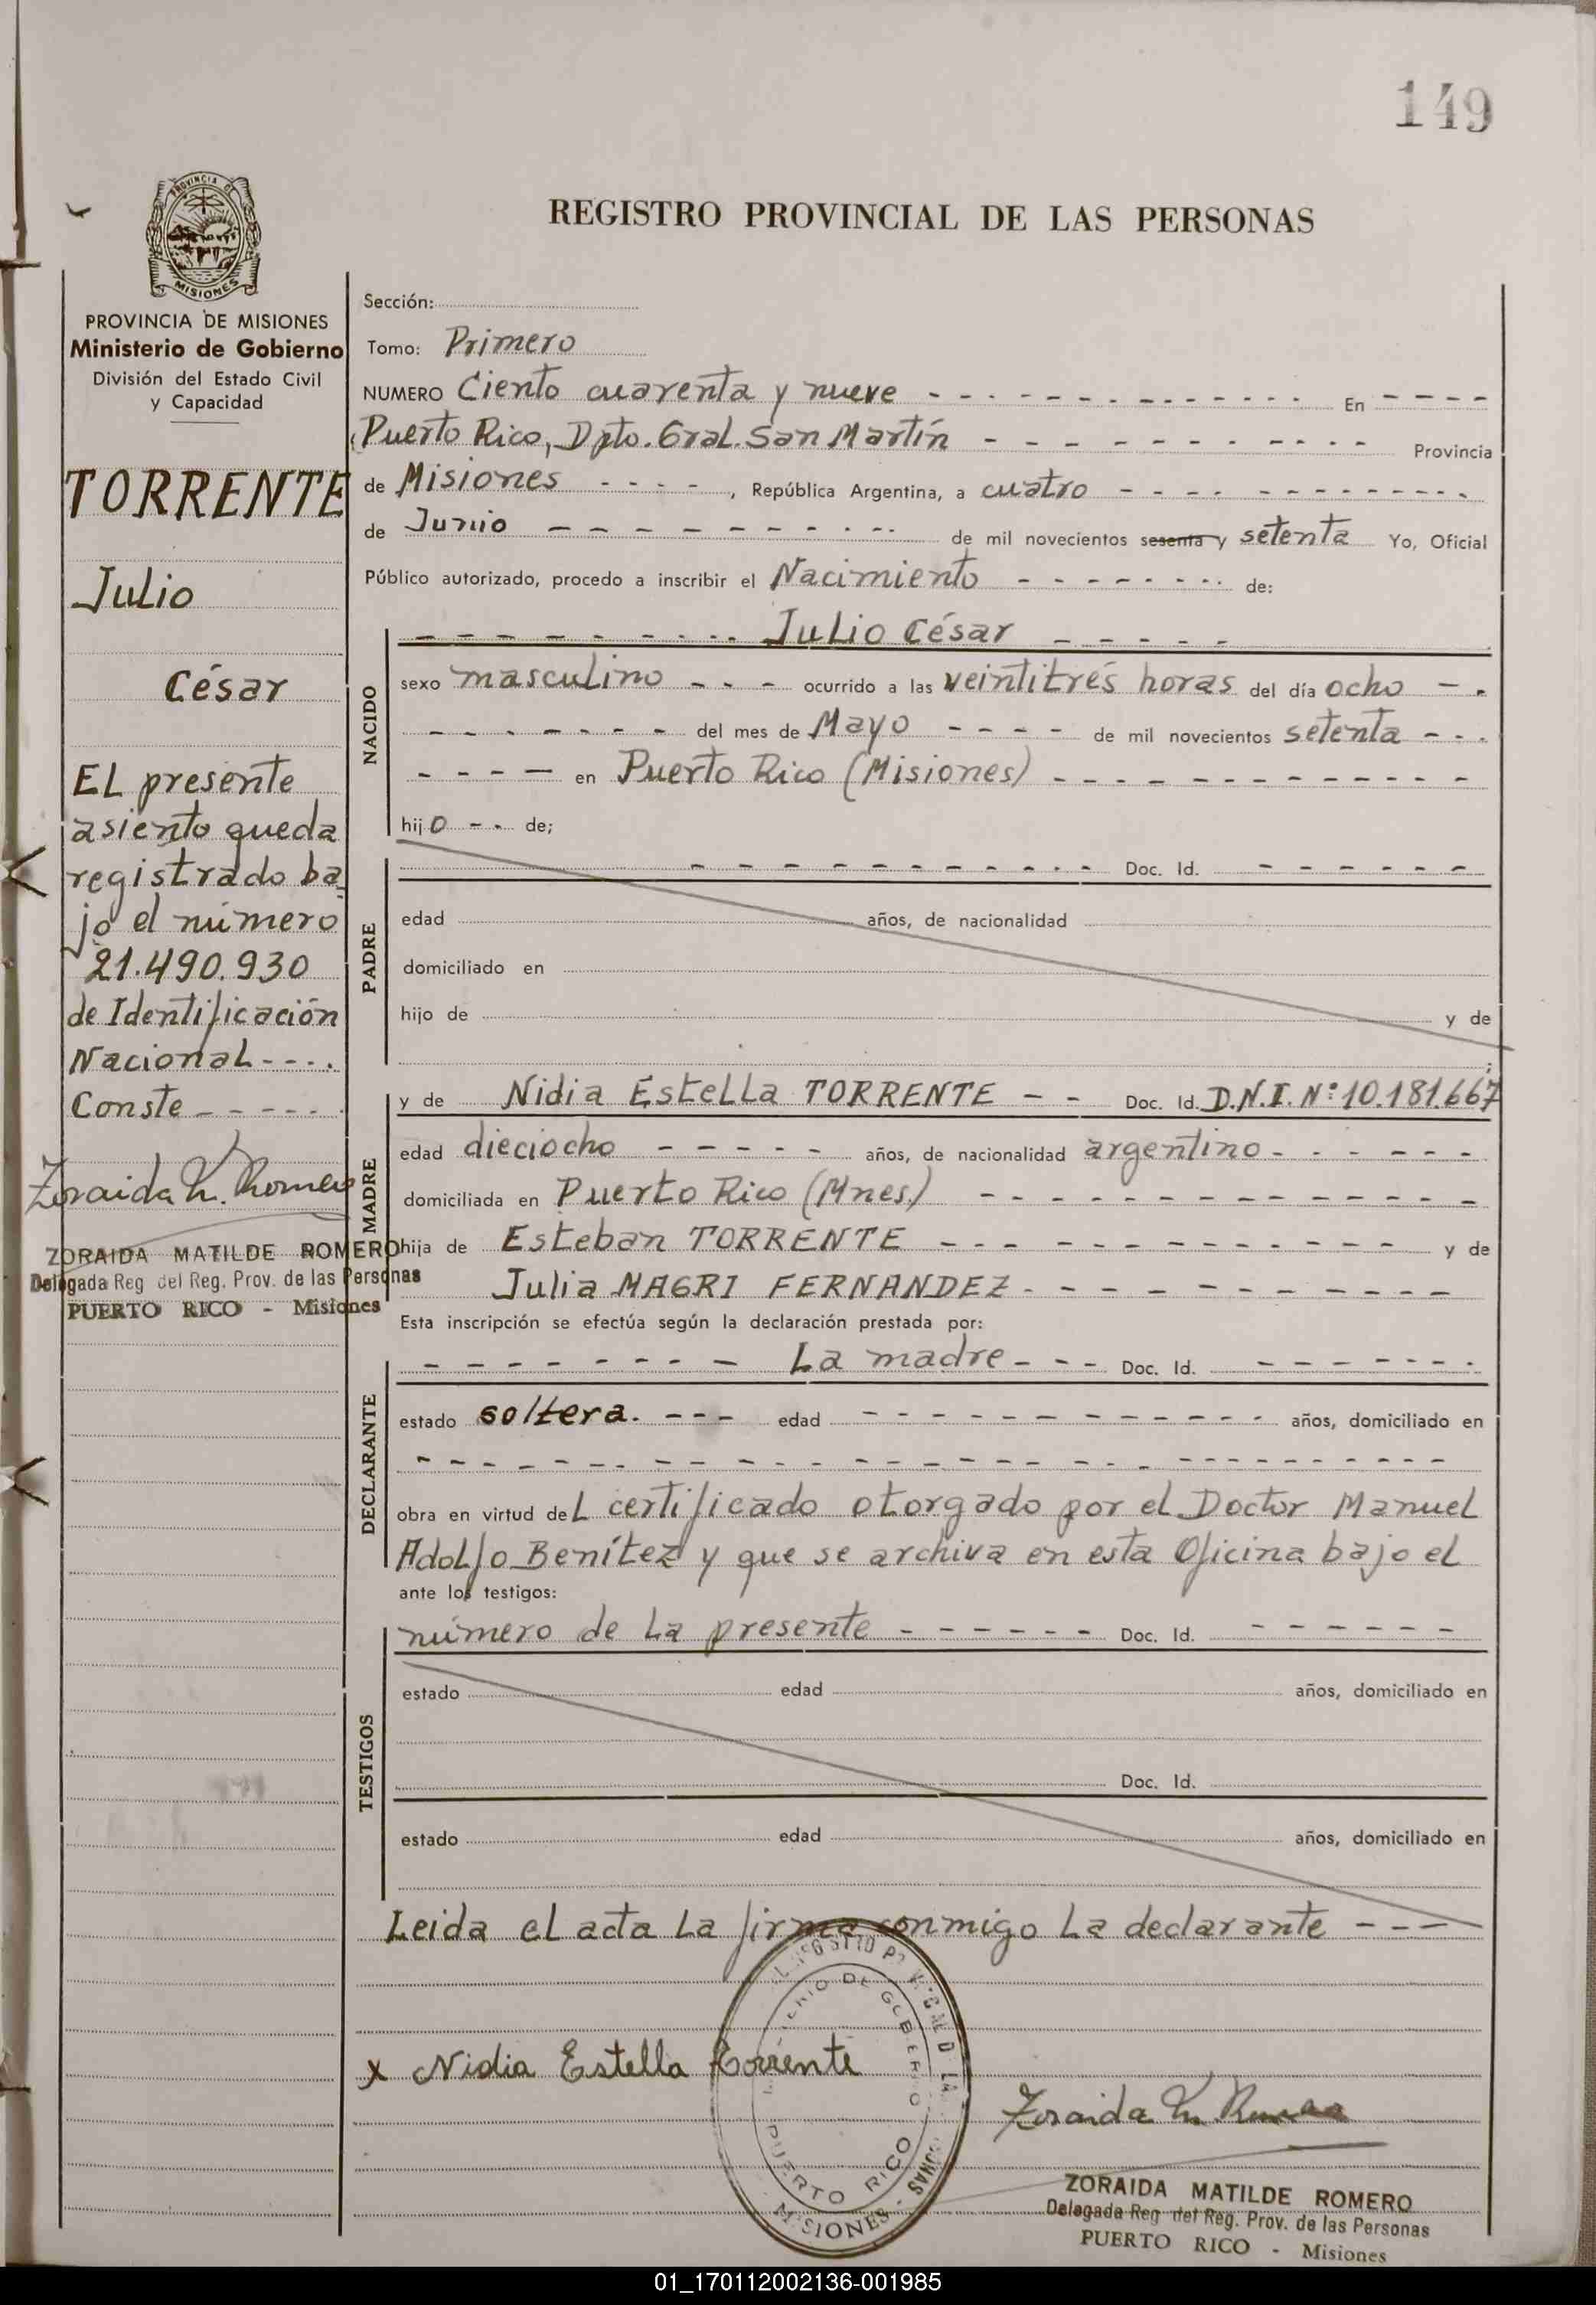 149
PROVINCIA DE
MISIONES
REGISTRO PROVINCIAL DE LAS PERSONAS
PROVINCIA DE MISIONES
Ministerio de Gobierno
División del Estado Civil
y Capacidad
TORRENTE
Julio
César
EL presente
asiento queda
registrado ba
jo el número
21.490.930
de Identificación
Nacional - - - .
Conste - - - - -
Zoraida M. Romero
ZORAIDA MATILDE ROMERO
Delegada Reg del Reg. Prov. de las Personas
PUERTO RICO - Misiones
Sección:
Tomo: Primero
NUMERO Ciento cuarenta y nueve - - - - En - - - -
Puerto Rico, Dpto. Gral. San Martín - - - - Provincia
de Misiones - - - -, República Argentina, a cuatro - - - -
de Junio - - - - de mil novecientos sesenta y setenta Yo, Oficial
Público autorizado, procedo a inscribir el Nacimiento - - - - de:
NACIDO
- - - - Julio César - - - -
sexo masculino - - - ocurrido a las veintitrés horas del día ocho - .
- - - - del mes de Mayo - - - - de mil novecientos setenta - - .
- - - - en Puerto Rico (Misiones) - - - -
hijo - - de;
PADRE
- - - - Doc. Id. - - - -
edad años, de nacionalidad
domiciliado en
hijo de y de
;
MADRE
y de Nidia Estella TORRENTE - - Doc. Id. D.N.I. Nº:10.181.667
edad dieciocho - - - - años, de nacionalidad argentino - - - -
domiciliada en Puerto Rico (Mnes.) - - - -
hija de Esteban TORRENTE - - - - y de
Julia MAGRI FERNANDEZ. - - - -
Esta inscripción se efectúa según la declaración prestada por:
DECLARANTE
- - - - La madre - - - Doc. Id. - - - -
estado soltera. - - - edad - - - - años, domiciliado en
- - - -
obra en virtud del certificado otorgado por el Doctor Manuel
Adolfo Benítez y que se archiva en esta Oficina bajo el
ante los testigos:
TESTIGOS
número de la presente - - - - Doc. Id. - - - -
estado edad años, domiciliado en
Doc. Id.
estado edad años, domiciliado en
Leida el acta la firma conmigo la declarante - - -
x Nidia Estella Torrente
PUERTO RICO
MISIONES
Zoraida M. Romero
ZORAIDA MATILDE ROMERO
Delegada Reg del Reg. Prov. de las Personas
PUERTO RICO - Misiones
01_170112002136-001985